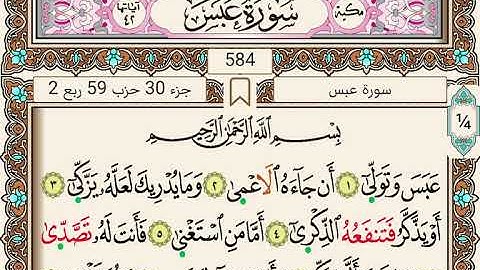 سورة عبس
مكية
آياتها
٤٢
584
سورة عبس
جزء 30 حزب 59 ربع 2
1/4
بِسْمِ اللَّهِ الرَّحْمَٰنِ الرَّحِيمِ
عَبَسَ وَتَوَلَّىٰ ١ أَن جَاءَهُ الَاعْمَىٰ ٢ وَمَا يُدْرِيكَ لَعَلَّهُ يَزَّكَّىٰ ٣
أَوْ يَذَّكَّرُ فَتَنفَعُهُ الذِّكْرَىٰ ٤ أَمَّا مَنِ اسْتَغْنَىٰ ٥ فَأَنتَ لَهُ تَصَّدَّىٰ